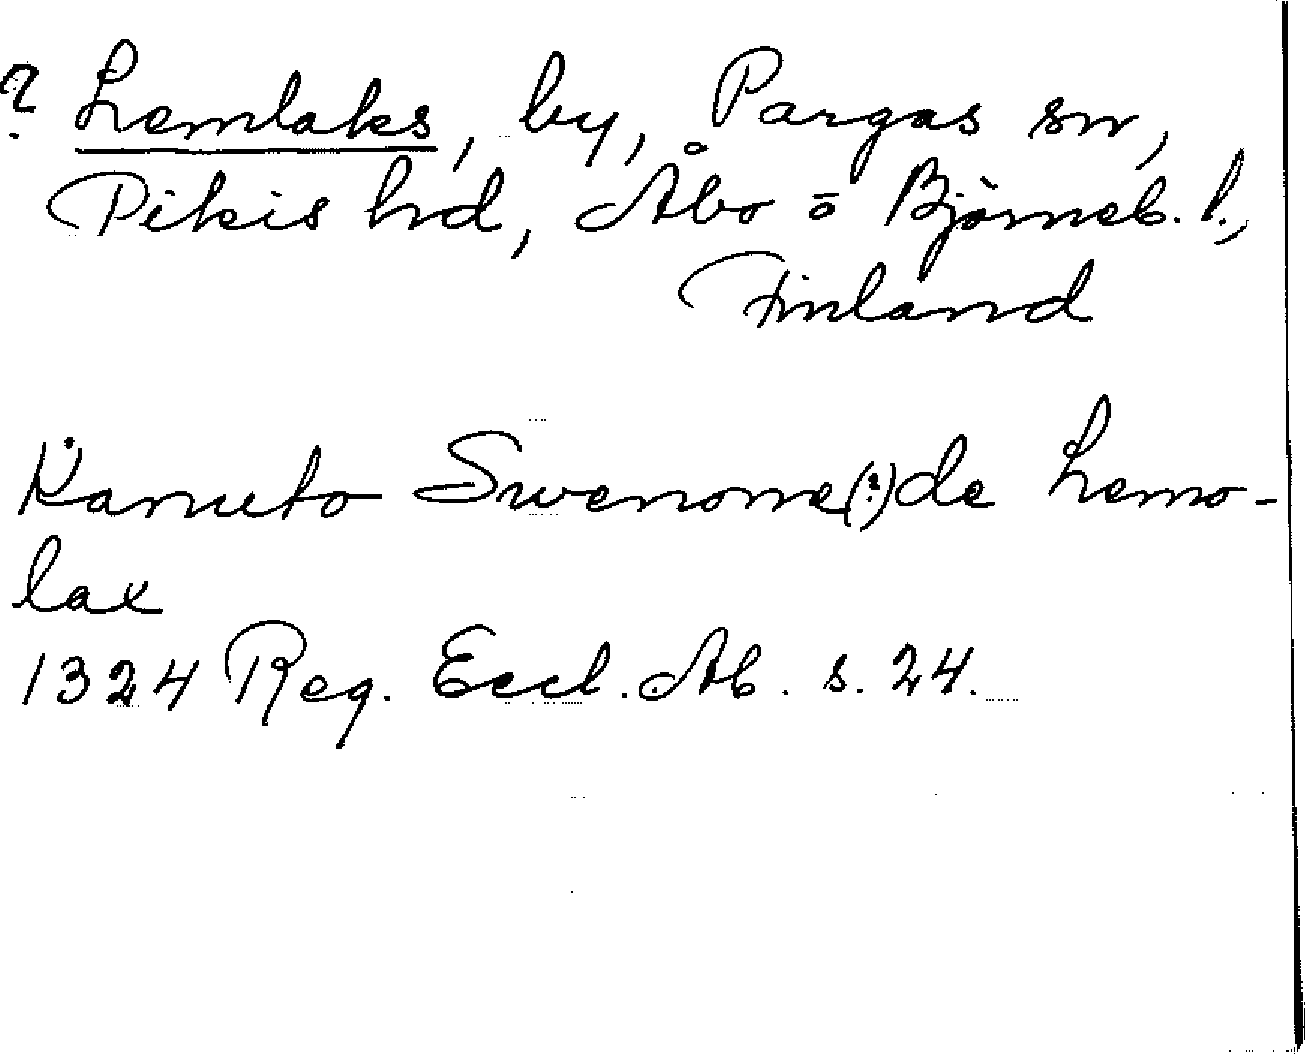 ? Lemlaks, by, Pargas sn,
Pikis hd, Åbo o Björneb. l.,
Finland
Kanuto Swenonne(?) de Lemo-
lax
1324 Reg. Eccl. Ab. s. 24.